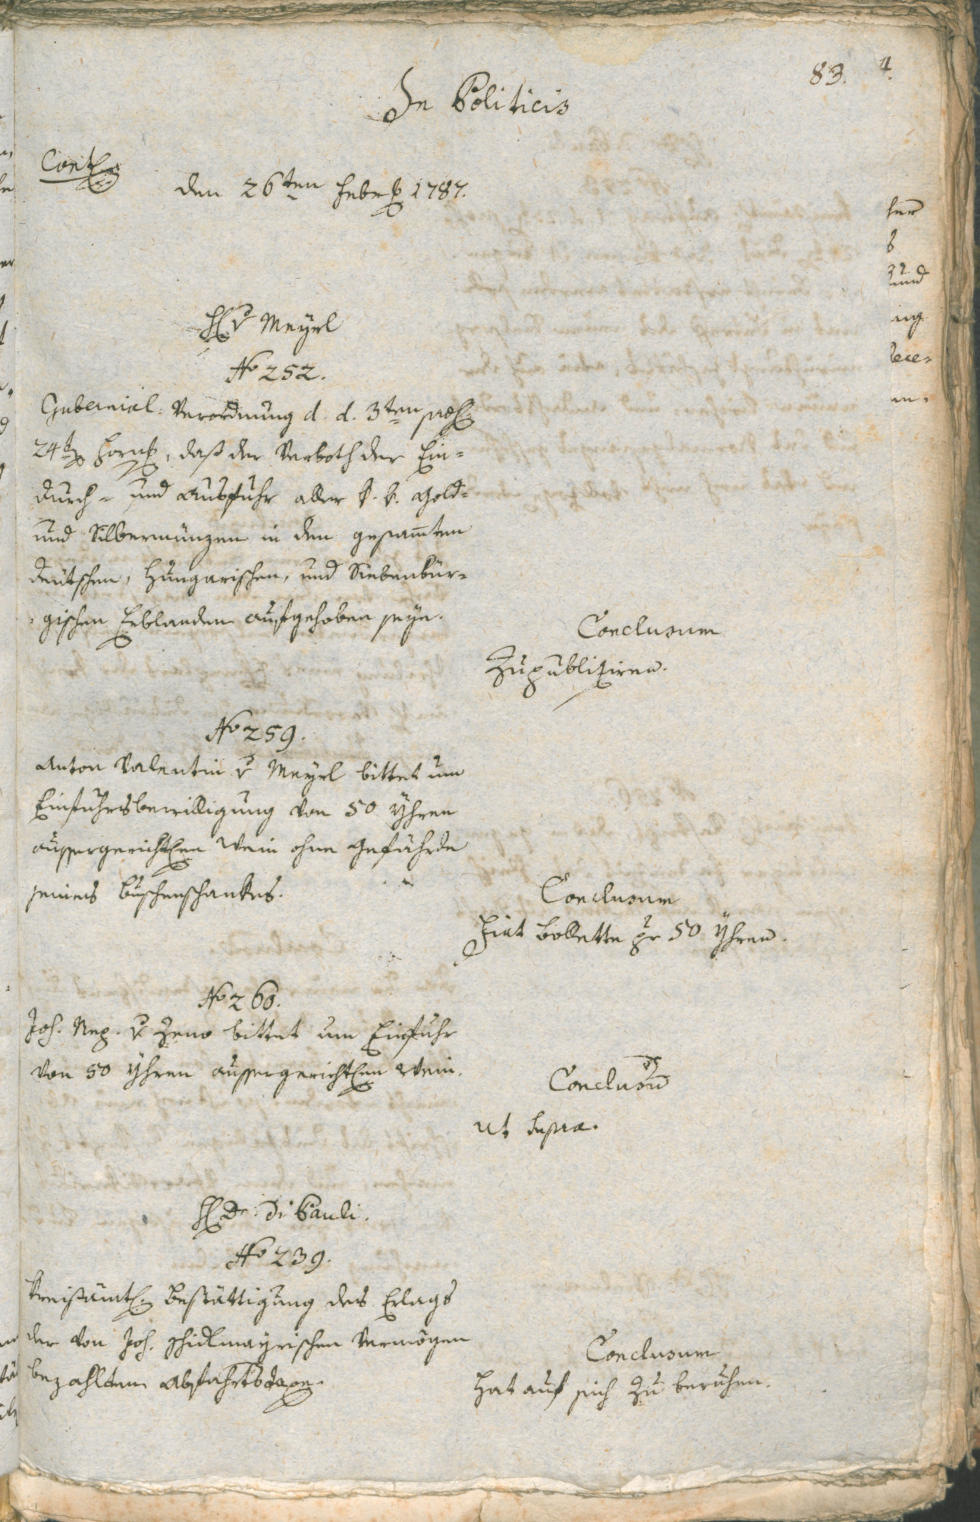 83. 4.
In Politicis
Cont.
den 26ten Febr. 1787.
H. v. Meyrl
No 252.
Gubernial-Verordnung d. d. 3ten
24ten Horn., daß der Verboth der Ein-
durch- und Ausfuhr aller k. k. Gold-
und Silbermünzen in den gesam̅ten
deutschen, Hungarischen, und Siebenbür-
gischen Erblanden aufgehoben seye.
Conclusum
Zu publiziren.
No 259.
Anton Valentin v. Meyrl bittet um
Einfuhrsbewilligung von 50 Yhren
aussergerichten Wein ohne Gefährde
seines Buschenschankes.
Conclusum
Fiat Bollette pr 50 Yhren.
No 260.
Joh. Nep. v. Zeno bittet um Einfuhr
von 50 Yhren aussergerichten Wein.
Conclusum
ut supra.
H. Dr. Di Pauli.
No 239.
Kreisämtl. Bestättigung des Erlags
der von Joh. Schidlmayrischen Vermögen
bezahlten Abfahrtstaxe.
Conclusum
Hat auf sich zu beruhen.